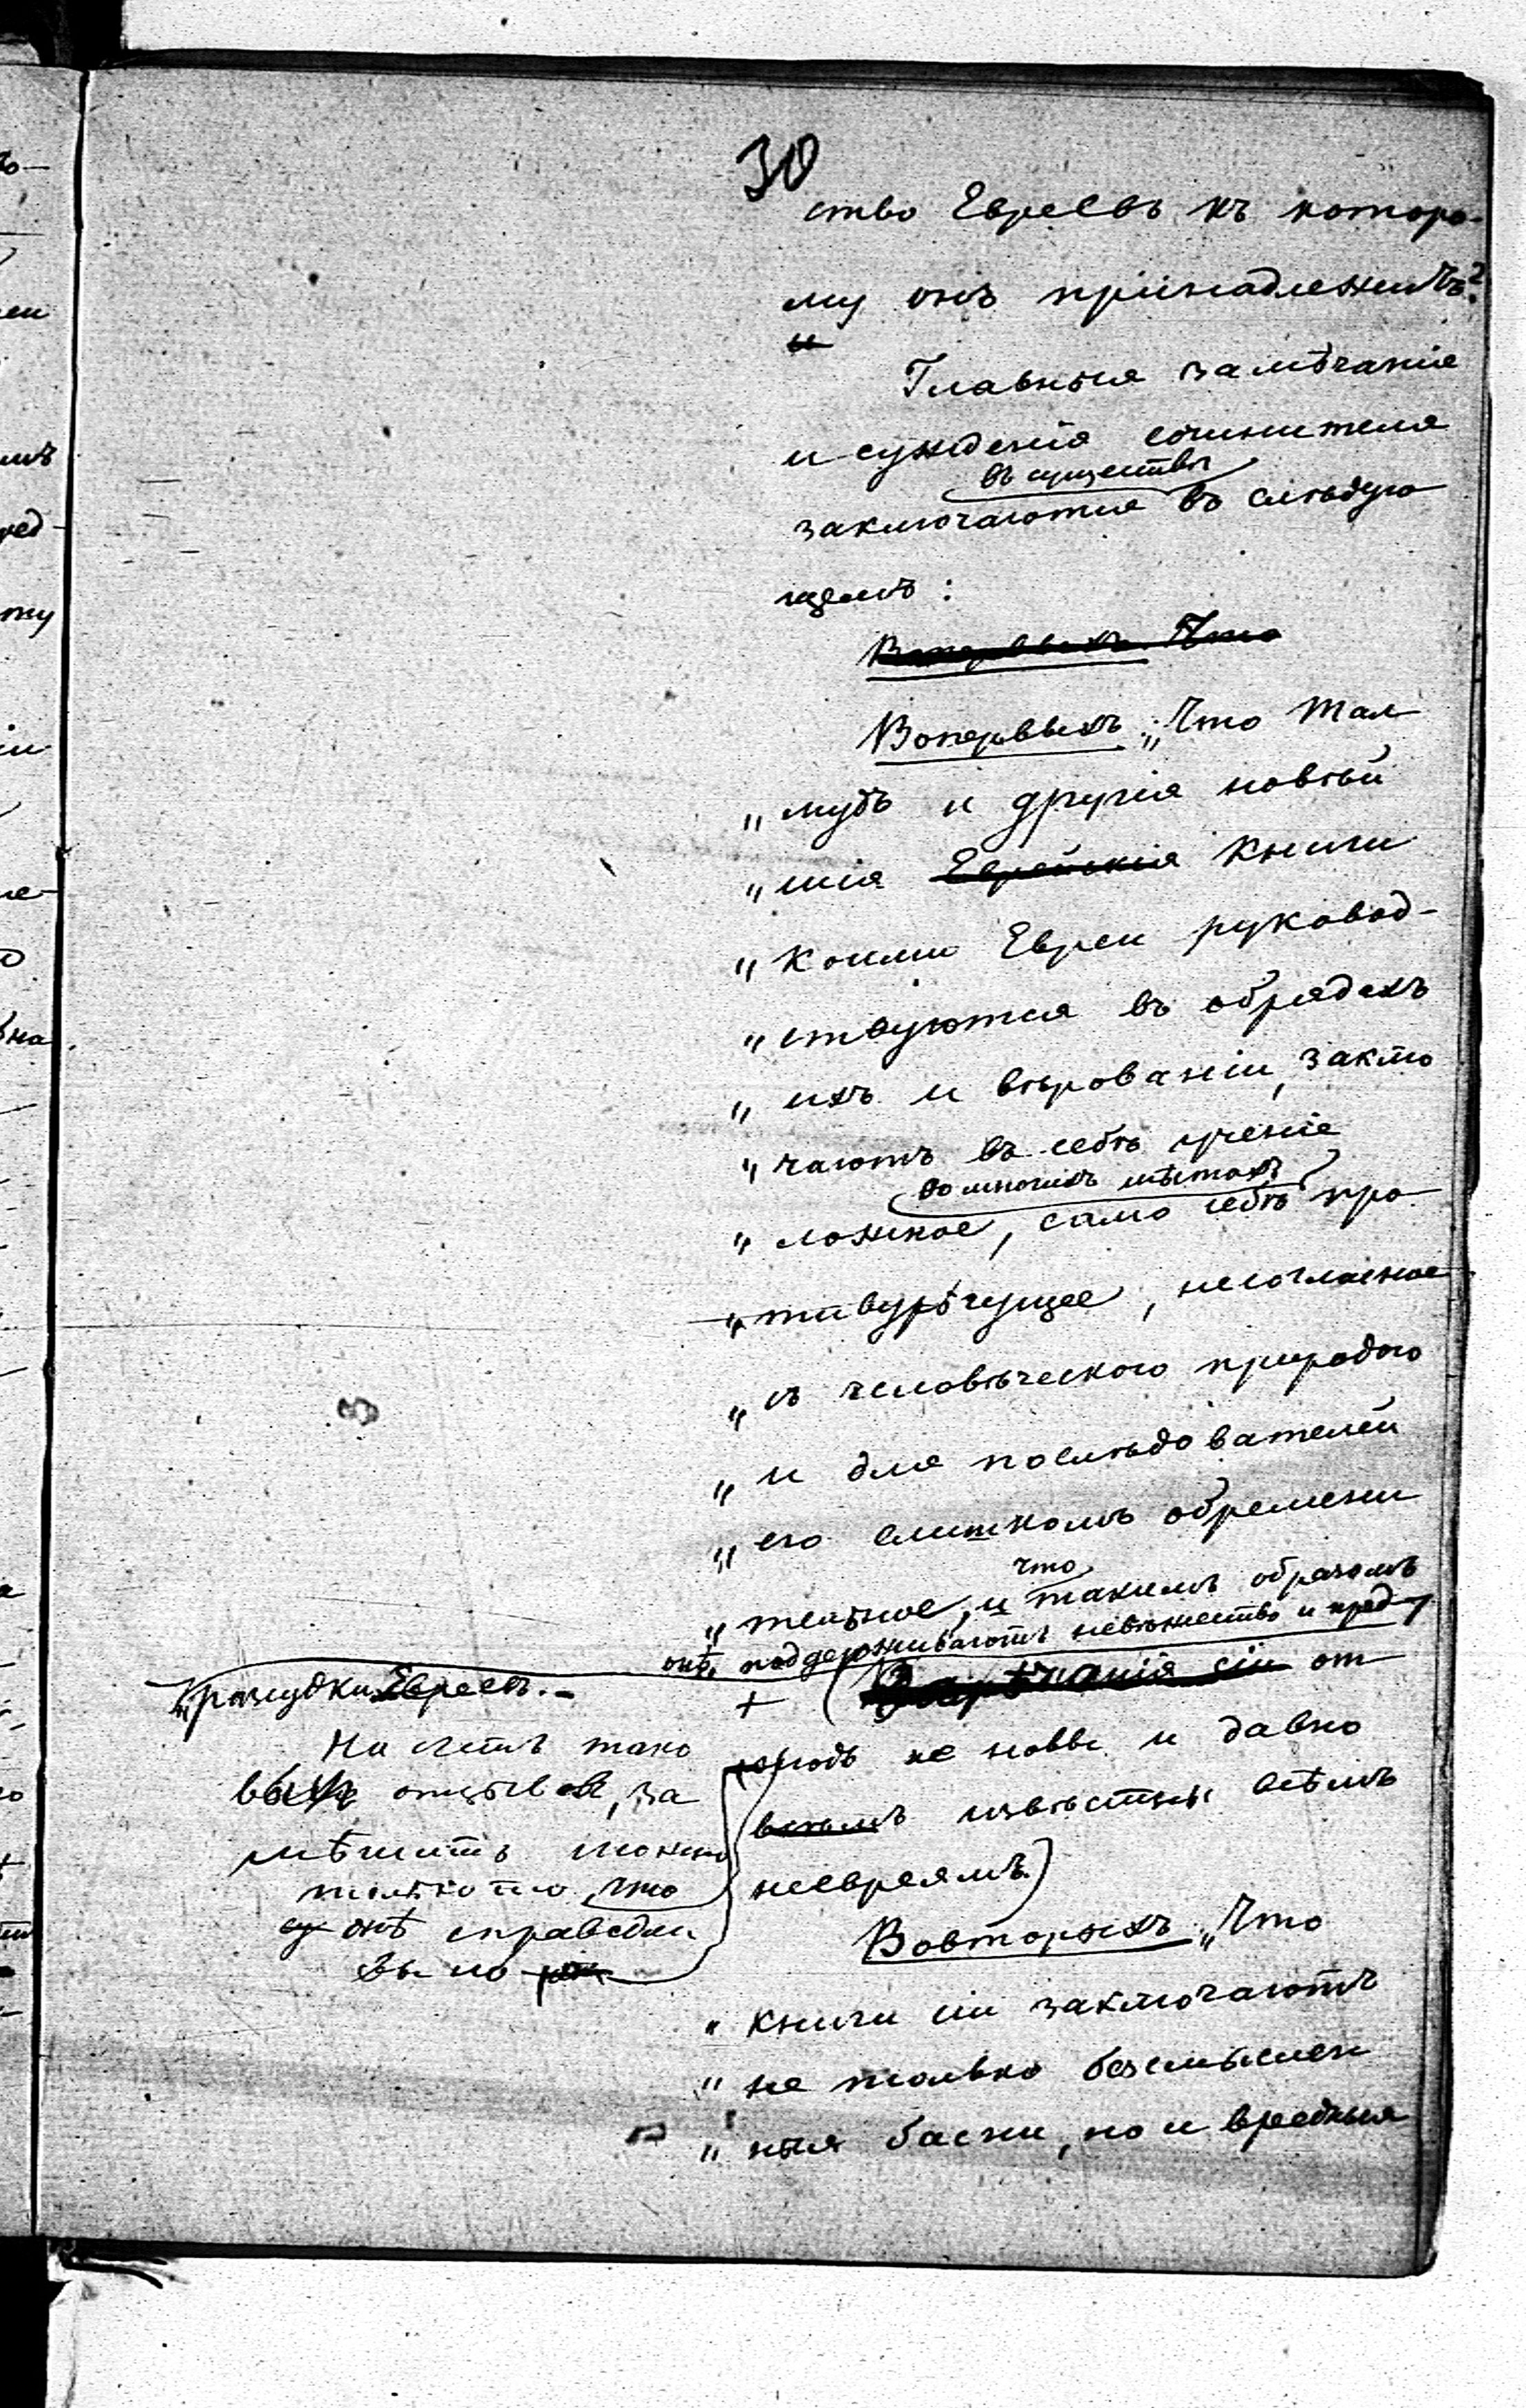 30
ство Евреевъ къ которо-
му онъ принадлежитъ?
Главныя замѣчанія
и сужденія сочинителя
въ существѣ
заключаются въ слѣдую
щемъ:
Вопервыхъ Что
Вопервыхъ „Что Тал
„мудъ и другія новѣй
„шія Еврейскія книги
„коими Евреи руковод-
„ствуются въ обрядахъ
„ихъ и вѣрованіи, заклю
„чаютъ въ себѣ ученіе
во многихъ мѣстахъ
„ложное, само себѣ про
„тивурѣчущее, несогласное
„съ человѣческою природою
„и для послѣдователей
„его слишкомъ обремени
что
„тельное, и такимъ образомъ
онѣ поддерживаютъ невѣжество и пред-
„разсудки Евреевъ.-
+ (Замѣчанія сіи от
нюдь не новы и давно
всѣмъ извѣстны всѣмъ
неевреямъ)
На счетъ тако
выхъ отзывовъ, за
мѣтить можно
только то, что
онѣ справедли
вы но
Вовторыхъ „Что
„книги сіи заключаютъ
„не только безсмыслен
„ныя басни, но и вредныя